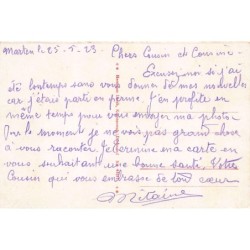 25-5-23 Chers Cousin et Cousine
Excusez moi si j'ai
été longtemps sans vous donner de mes nouvelles
car j'étais parti en perme. J'en profite en
même temps pour vous envoyer ma photo.
Pour le moment je ne vois pas grand chose
à vous raconter. Je termine ma carte en
vous souhaitant une bonne santé. Votre
Cousin qui vous embrasse de tout cœur